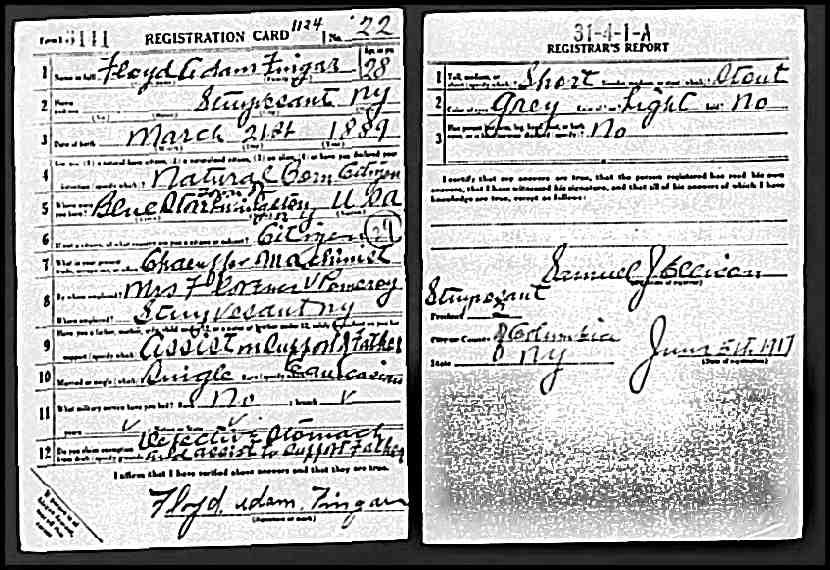 Form 1 5111 REGISTRATION CARD 1124 No. 22
1 Name in full Floyd Adam Fingar Age, in yrs 28
2 Home Stuyvesant NY
3 Date of birth March 21st 1889
4 Are you (1) a natural born citizen, (2) a naturalized citizen, (3) an alien, (4) or have you declared your
intention (specify which)? Natural Born Citizen
5 Where were you born? Blue Livingston N Y USA
6 If not a citizen, of what country are you a citizen or subject? Citizen 29
7 What is your present trade, occupation, or office? Chauffer Machinist
8 By whom employed? Mrs Florence V Pomeroy
Where employed? Stuyvesant NY
9 Have you a father, mother, wife, child under 12, or a sister or brother under 12, solely dependent on you for
support (specify which)? Assist on Support Father
10 Married or single (which)? Single Race (specify which)? Caucasian
11 What military service have you had? Rank No ; branch √
years √ √
12 Do you claim exemption from draft (specify grounds)? Defective Stomach
and assist to Support Father
I affirm that I have verified above answers and that they are true.
Floyd Adam Fingar
(Signature or mark)
31-4-1-A
REGISTRAR'S REPORT
1 Tall, medium, or short (specify which)? Short Slender, medium, or stout (which)? Stout
2 Color of eyes? Grey Color of hair? Light Bald? No
3 Has person lost arm, leg, hand, foot, or both eyes, or is he otherwise disabled (specify)? No
I certify that my answers are true, that the person registered has read his own
answers, that I have witnessed his signature, and that all of his answers of which I have
knowledge are true, except as follows:
Samuel J Ellison
(Signature of registrar)
Stuyvesant
Precinct 2
City or County Columbia
State NY June 5th 1917
(Date of registration)